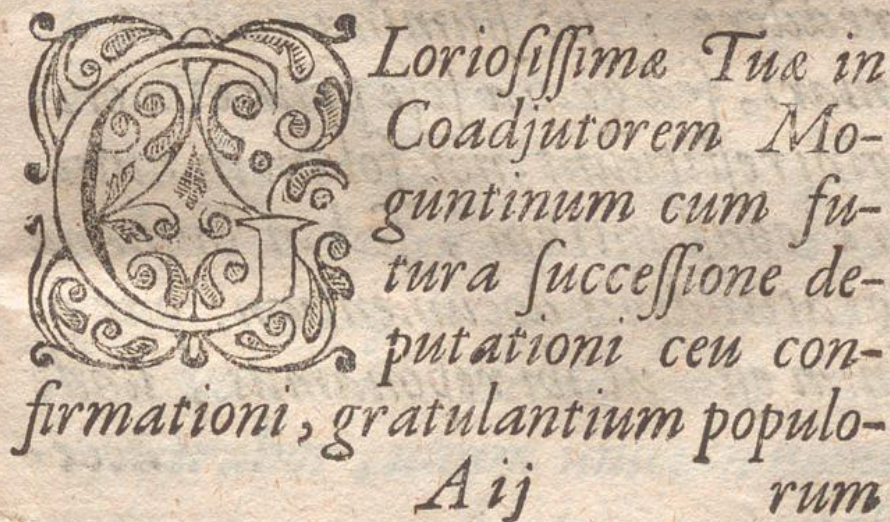 GLorioſiſſimæ Tuæ in
Coadjutorem Mo-
guntinum cum fu-
tura ſucceſſione de-
putationi ceu con-
firmationi, gratulantium populo-
A ij rum